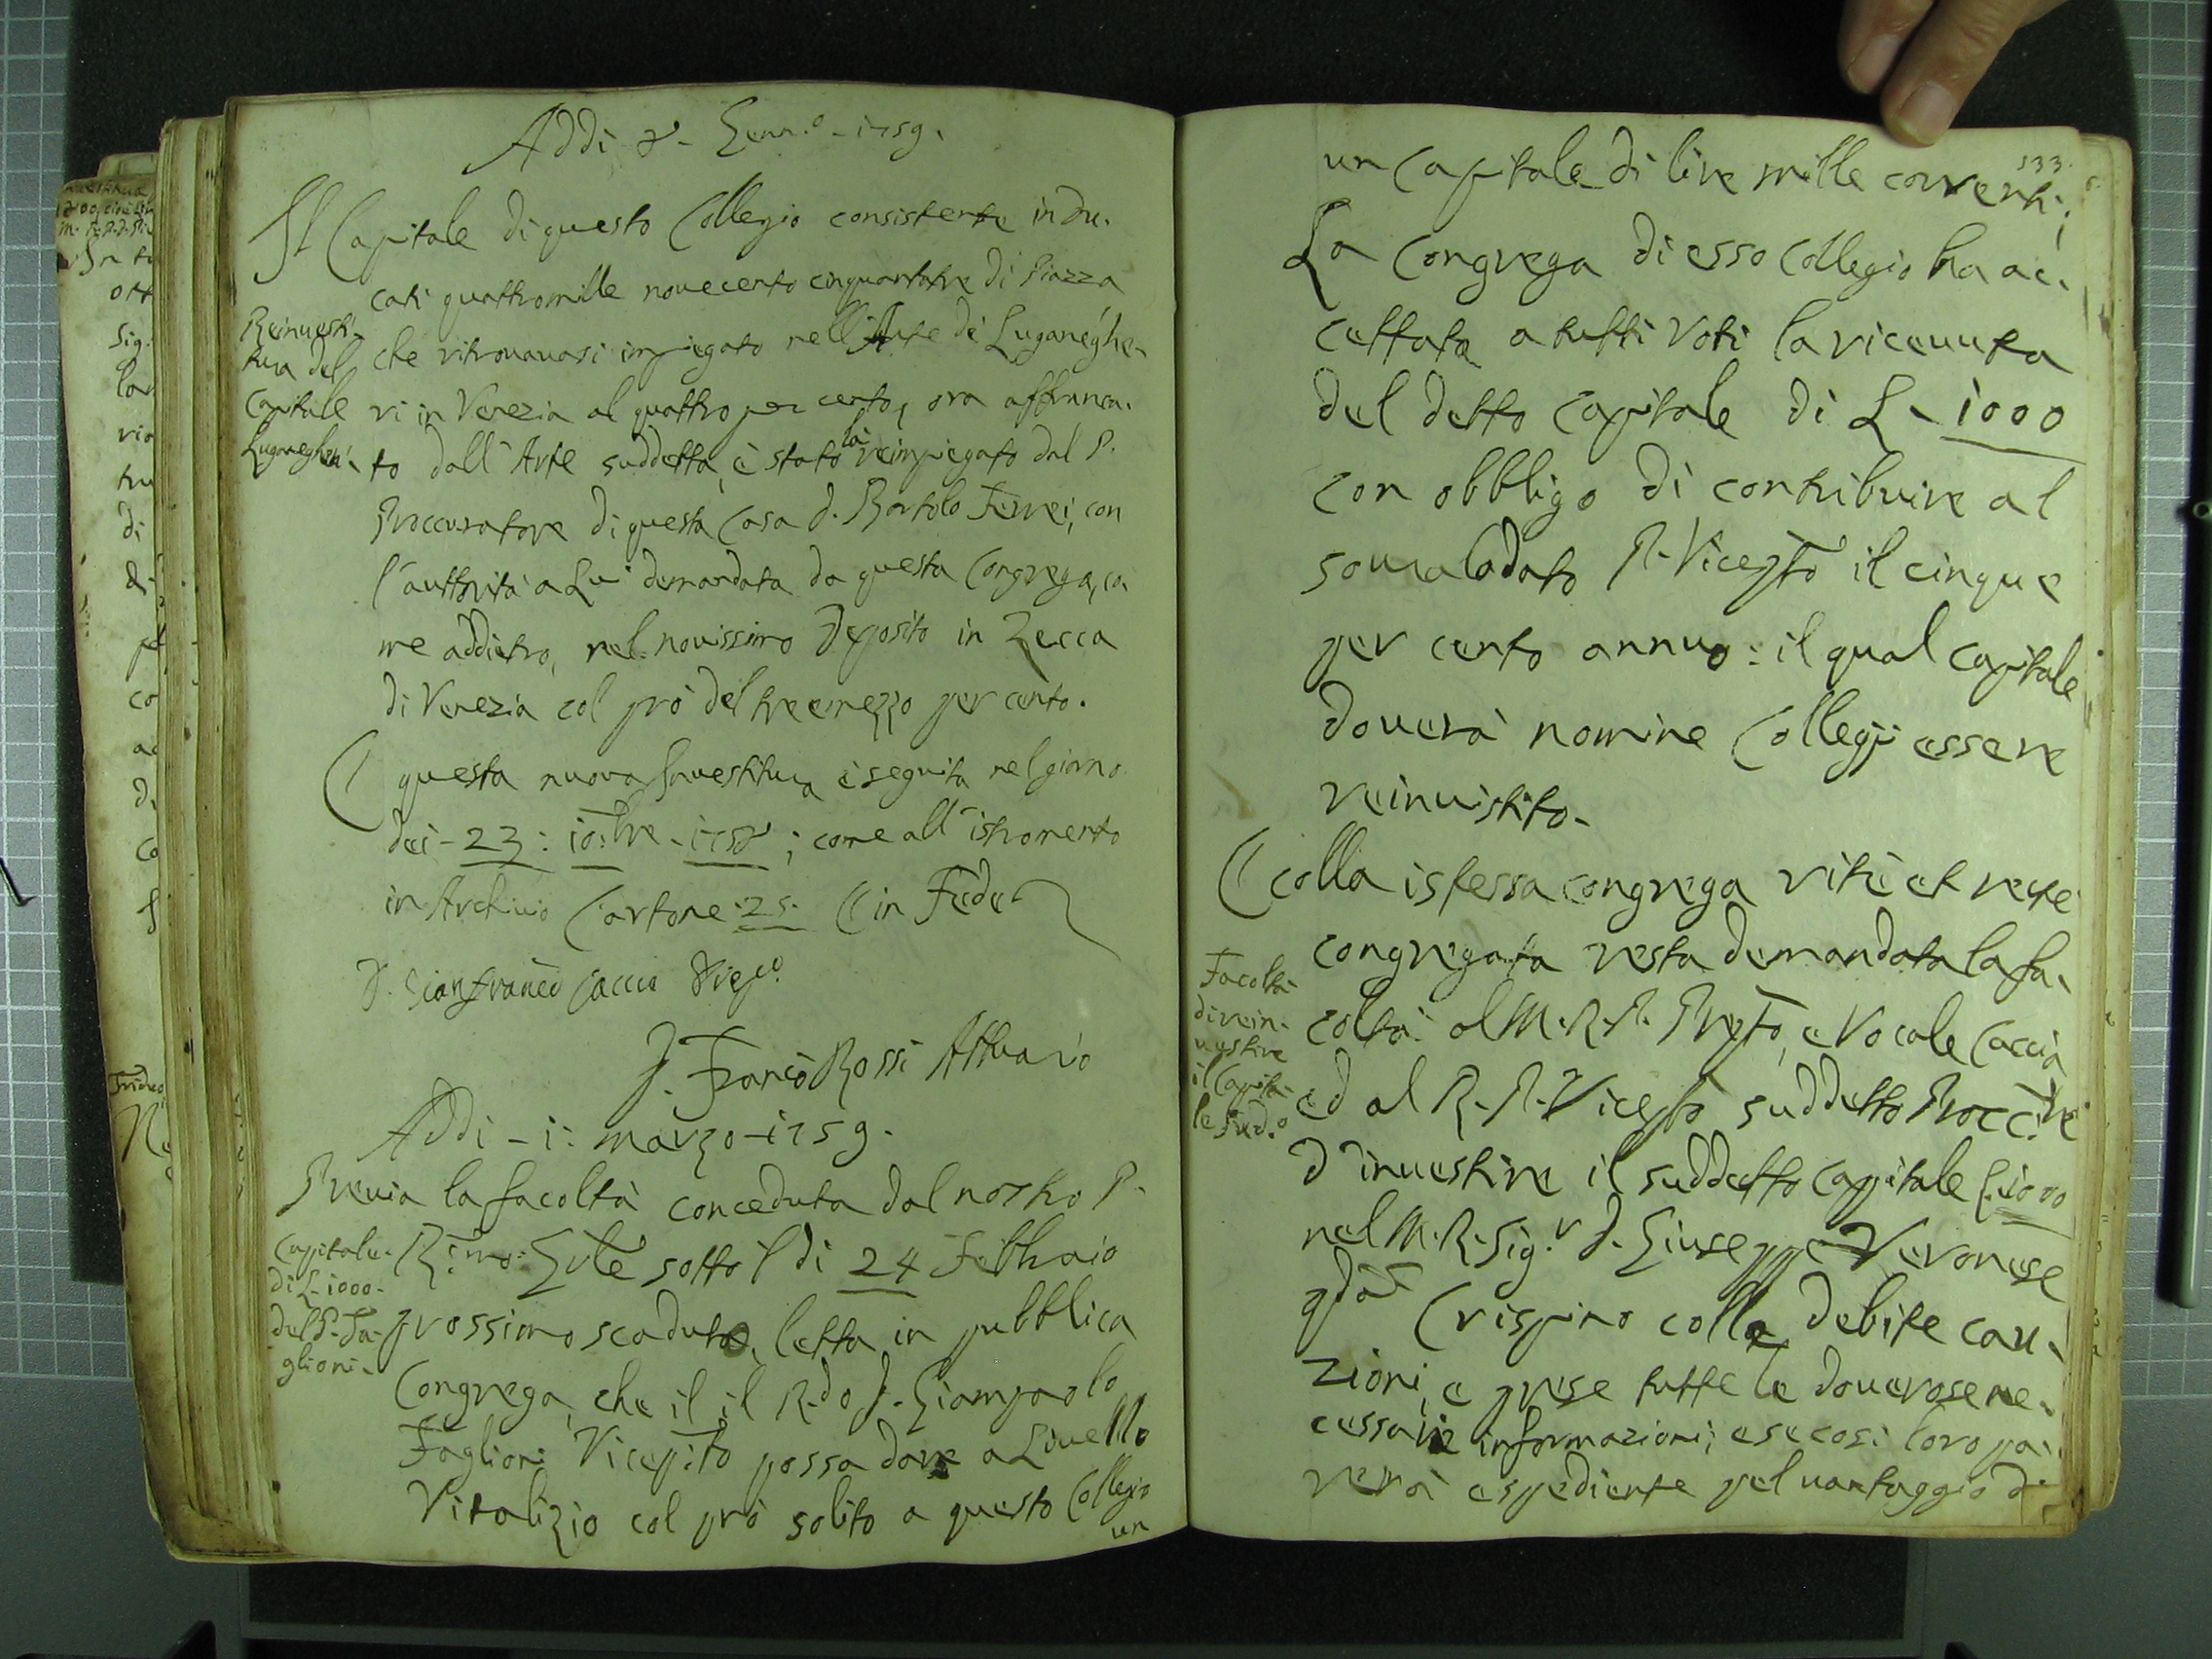 Addi 8. Genn.o - 1759.
Il Capitale di questo Collegio consistente in du-
cati quattromille novecento cinquantatre di Piazza
Reinuesti-
tura del
Capitale
Luganegheri.
che ritrouauasi impiegato nell'Arte de Luganeghe-
ri in Venezia al quattro per cento, ora affranca-
to dall'Arte suddetta, è stato là reimpiegato dal P.
Proccuratore di questa Casa d. Bortolo Ferrei, con
l'autorità a Lui demandata da questa Congrega, co
me addietro, nel novissimo Deposito in Zecca
di Venezia col prò del tre e mezzo per cento.
E questa nuova Inuestitura è seguita nel giorno
dei - 23: 10:bre - 1758; come all'istromento
in Archivio Cartone 25. E in Fede
D. Gianfranco Caccia Prep.o
D. Franco Rossi Attuario
Addi - 1: marzo - 1759.
Preuia la facoltà conceduta dal nostro P.
Capitale
di L. 1000.
del P. Fa-
glioni.
R.mo Gnle sotto l dì 24 Febbraio
prossimo scaduto, letta in pubblica
Congrega, che il il R.do D. Giampaolo
Faglioni Vicepto possa dare a Liuello
Vitalizio col prò solito a questo Collegio
un
133.
un Capitale di lire mille correnti;
La Congrega di esso Collegio ha ac-
cettata a tutti Voti la riceuuta
del detto Capitale di L. 1000
con obbligo di contribuire al
soualodato P. Vicepto il cinque
per cento annuo: il qual capitale
douerà nomine Collegii essere
reinuistito.
E colla istessa congrega ritè et rectè
congregata resta demandata la fa-
Facoltà
di rein-
uestire
il Capita-
le sud.o
coltà al M. R. P. Prepto, e Vocale Caccia
ed al R. P. Vicepto suddetto Procc.re
d'inuestire il suddetto Capitale L. 1000
nel M. R. Sig.r D. Giuseppe Veronese
qdam Crispino colle debite cau-
zioni, e prese tutte le douerose ne-
cessarie informazioni; e se così loro pa-
rerà espediente pel uantaggio di